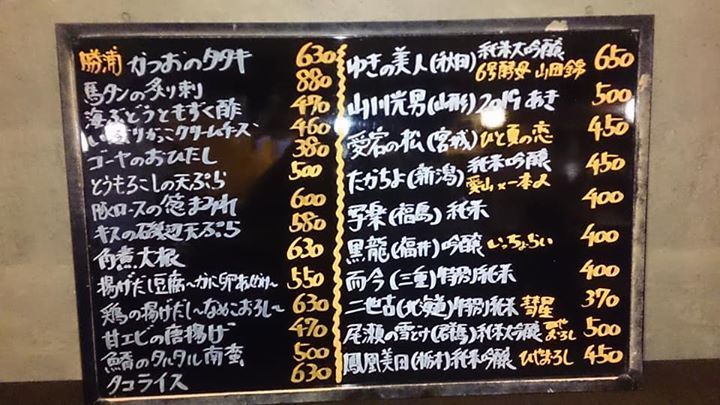 勝浦 かつおのタタキ 630
馬タンの炙り刺 880
海ぶどうともずく酢 490
いぶりがっこクリームチーズ 460
ゴーヤのおひたし 380
とうもろこしの天ぷら 500
豚ロースの 600
キスの磯辺天ぷら 580
角煮大根 630
揚げだし豆腐〜かに卵あんかけ〜 550
鶏の揚げだし〜なめこおろし〜 630
甘エビの唐揚げ 470
鯖のタルタル南蛮 500
タコライス 630
ゆきの美人(秋田)純米大吟醸 6号酵母 山田錦 650
山川光男(山形)2019 あき 500
愛宕の松(宮城)ひと夏の恋 450
たかちよ(新潟)純米吟醸 愛山×一本〆 450
写楽(福島)純米 400
黒龍(福井)吟醸 いっちょらい 400
而今(三重)特別純米 400
二世古(北海道)特別純米 彗星 370
尾瀬の雪どけ(群馬)純米大吟醸 ひやおろし 500
鳳凰美田(栃木)純米吟醸 ひやおろし 450